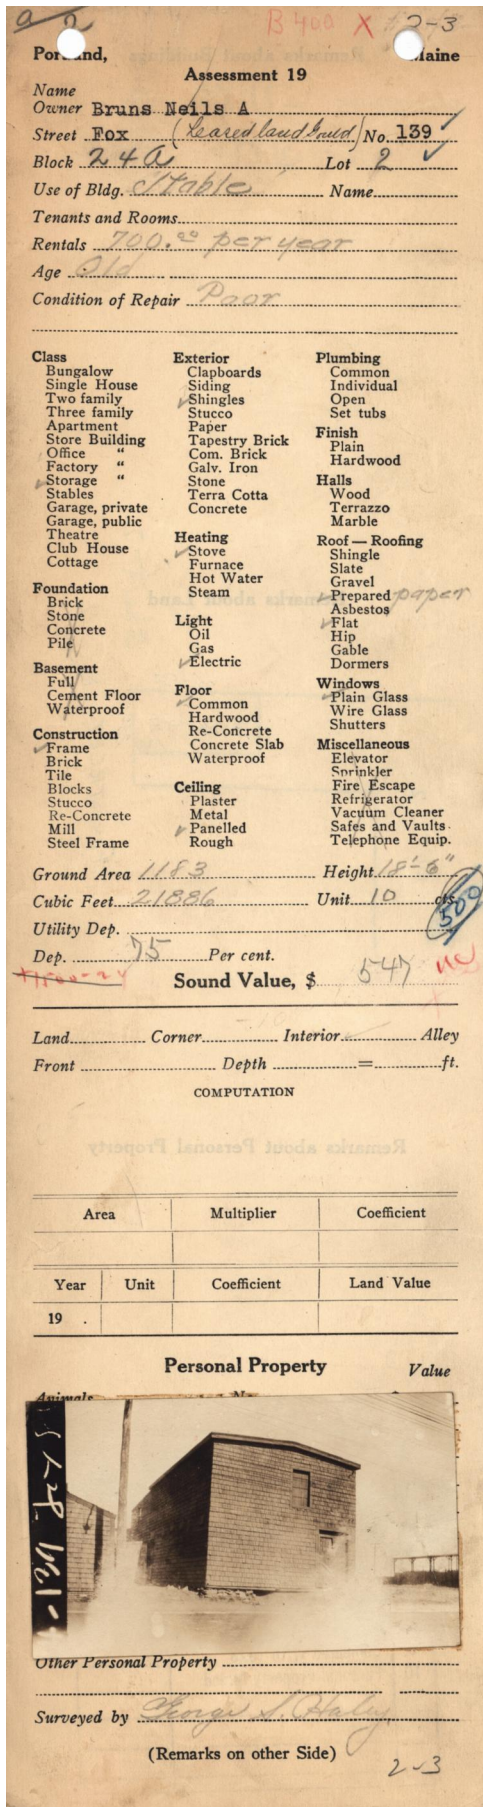 a 2
B 400 X 2-3
Portland, Maine
Assessment 19
Name
Owner Bruns Neils A
Street Fox (Leased land Gould) No. 139
Block 24A Lot 2
Use of Bldg. Stable Name
Tenants and Rooms
Rentals 700.00 per year
Age Old
Condition of Repair Poor
Class
Bungalow
Single House
Two family
Three family
Apartment
Store Building
Office "
Factory "
Storage "
Stables
Garage, private
Garage, public
Theatre
Club House
Cottage
Foundation
Brick
Stone
Concrete
Pile
Basement
Full
Cement Floor
Waterproof
Construction
Frame
Brick
Tile
Blocks
Stucco
Re-Concrete
Mill
Steel Frame
Exterior
Clapboards
Siding
Shingles
Stucco
Paper
Tapestry Brick
Com. Brick
Galv. Iron
Stone
Terra Cotta
Concrete
Heating
Stove
Furnace
Hot Water
Steam
Light
Oil
Gas
Electric
Floor
Common
Hardwood
Re-Concrete
Concrete Slab
Waterproof
Ceiling
Plaster
Metal
Panelled
Rough
Plumbing
Common
Individual
Open
Set tubs
Finish
Plain
Hardwood
Halls
Wood
Terrazzo
Marble
Roof — Roofing
Shingle
Slate
Gravel
Prepared paper
Asbestos
Flat
Hip
Gable
Dormers
Windows
Plain Glass
Wire Glass
Shutters
Miscellaneous
Elevator
Sprinkler
Fire Escape
Refrigerator
Vacuum Cleaner
Safes and Vaults
Telephone Equip.
Ground Area 1183 Height 18'-6"
Cubic Feet 21886 Unit 10 cts.
500
Utility Dep.
Dep. 75 Per cent.
Sound Value, $ 547
Land Corner Interior Alley
Front Depth = ft.
COMPUTATION
Area Multiplier Coefficient
Year Unit Coefficient Land Value
19 .
Personal Property Value
Animals
Other Personal Property
Surveyed by George S. Haley
(Remarks on other Side)
2-3